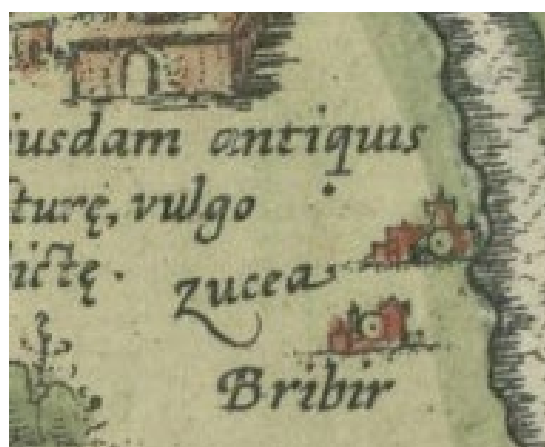 iusdam antiquis
turę, vulgo
ictę.
zucea
Bribir